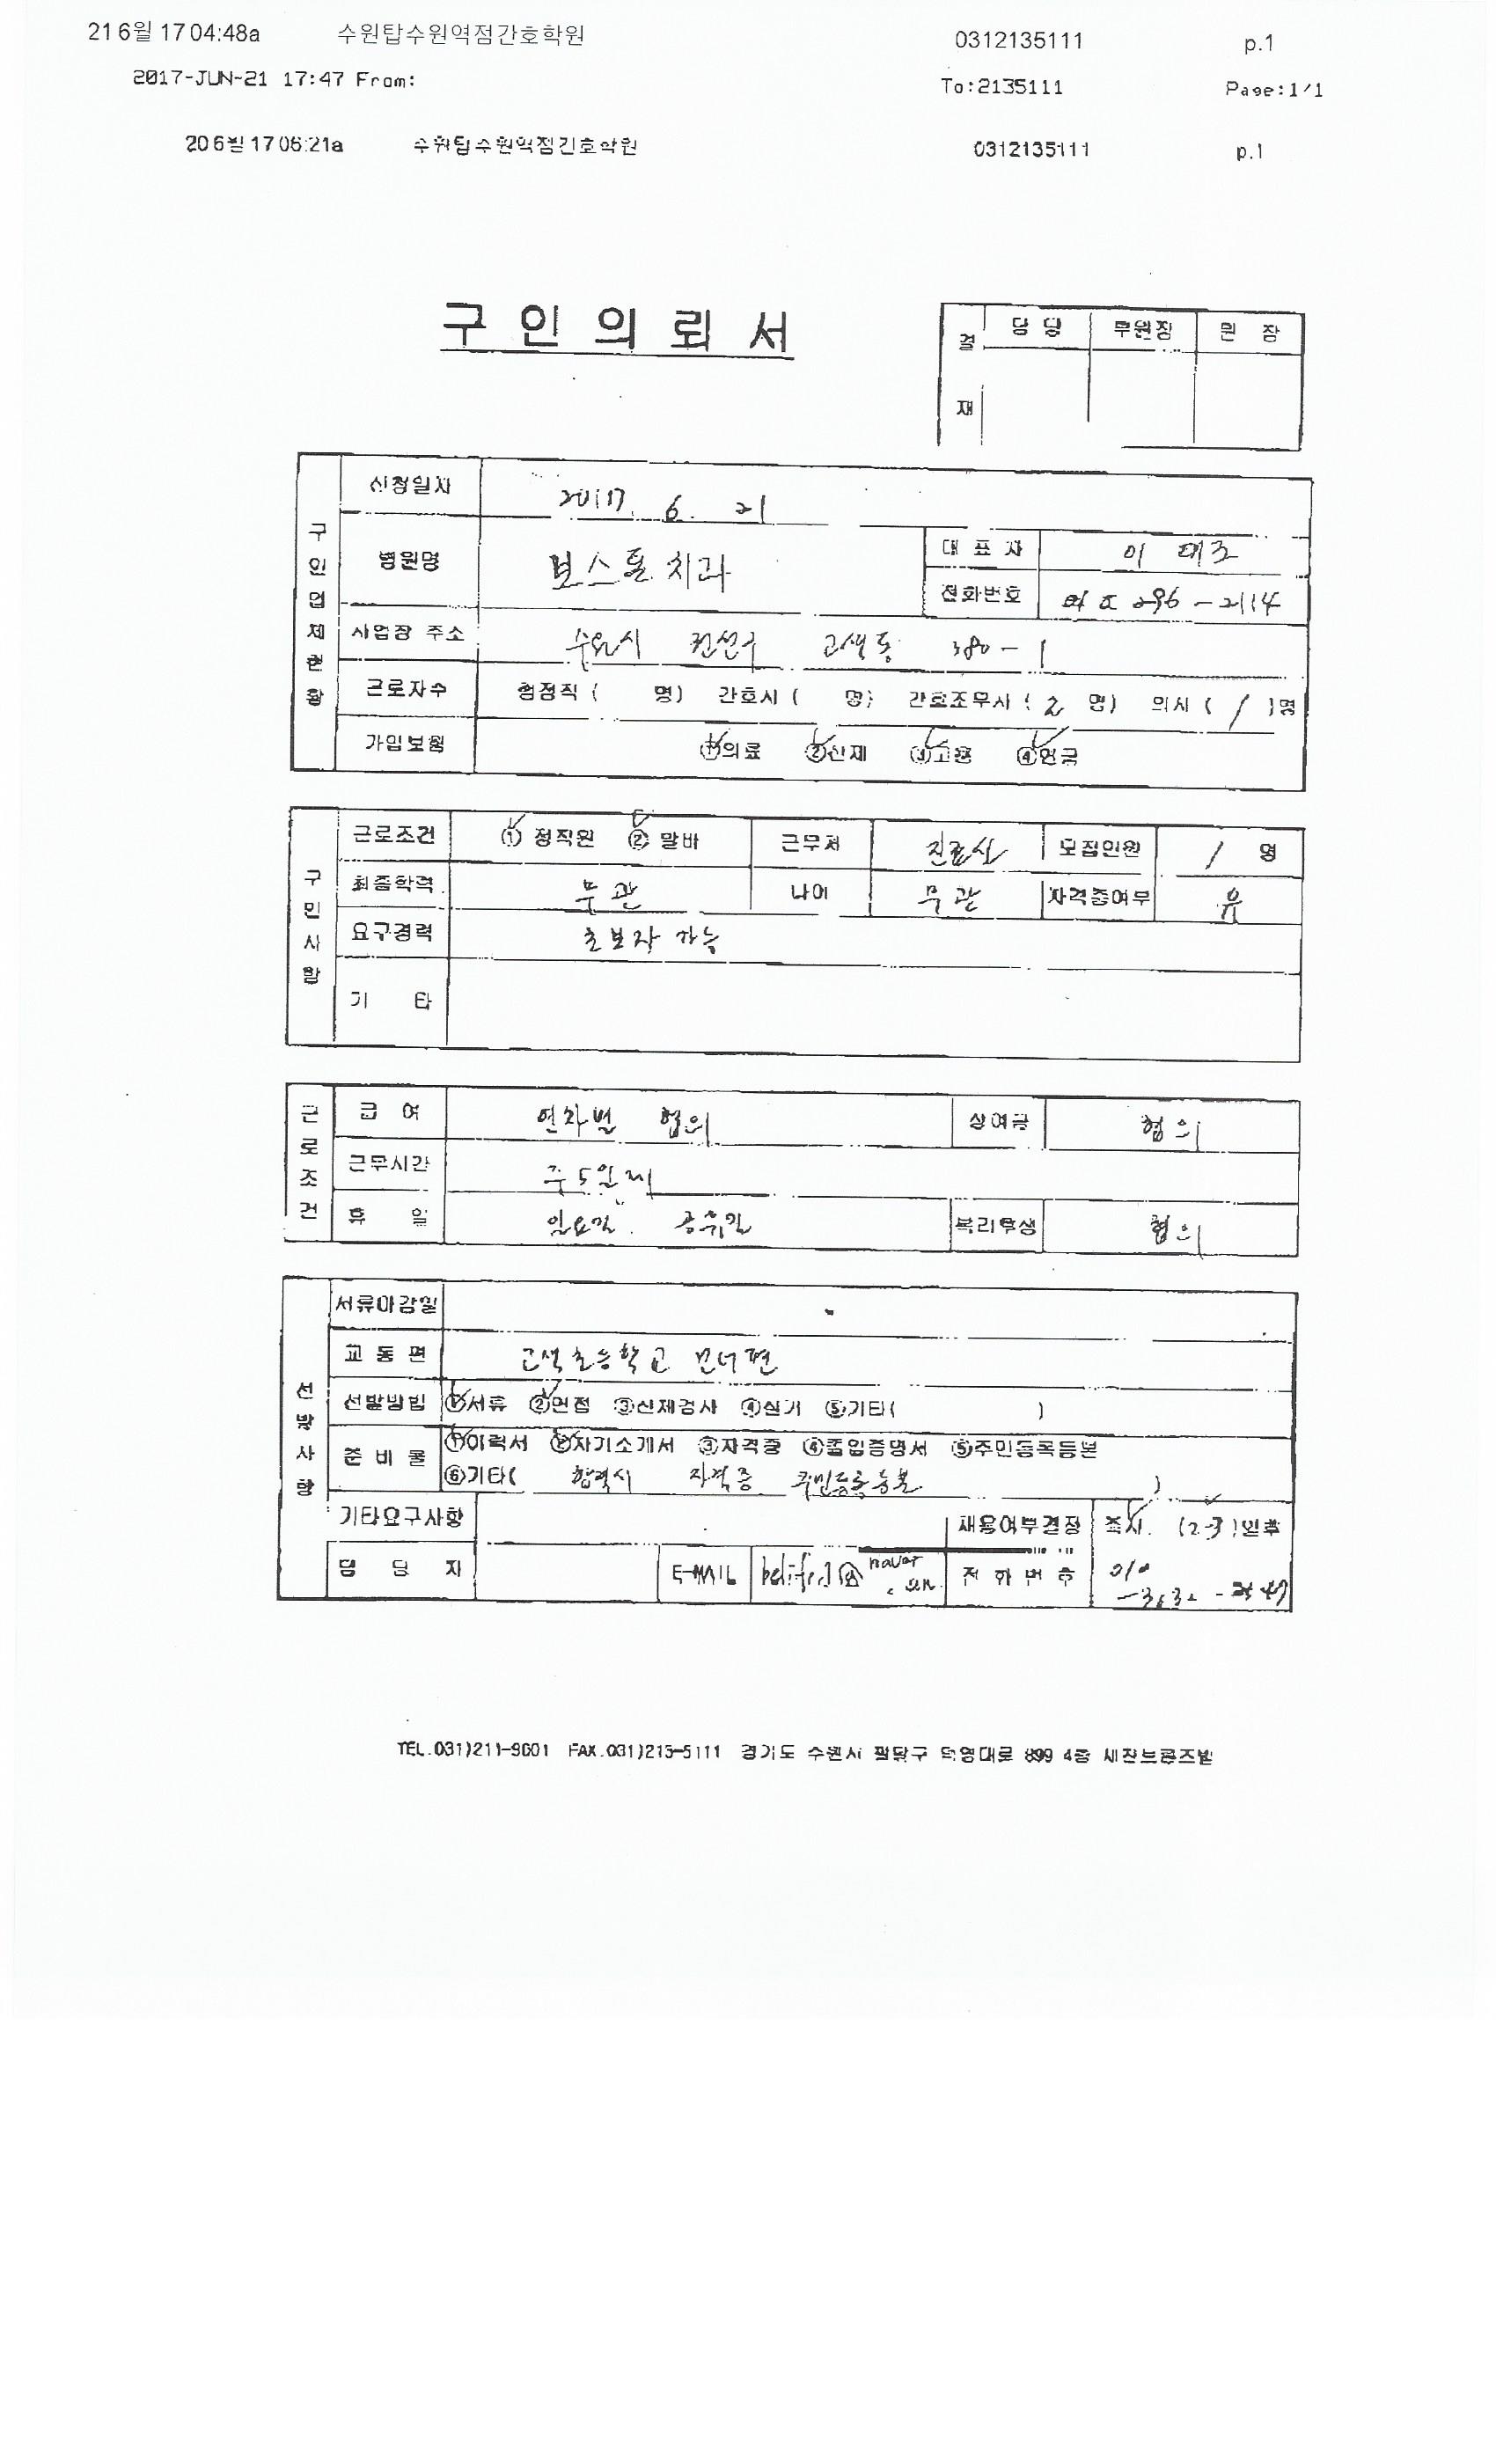 21 6월 17 04:48a 수원탑수원역점간호학원 0312135111 p.1
2017-JUN-21 17:47 From: To:2135111 Page:1/1
20 6월 17 06:21a 수원탑수원역점간호학원 0312135111 p.1
구인의뢰서
결재 담당 부원장 원장
구인업체현황
신청일자 2017. 6. 21
병원명 보스톤 치과 대표자 이
전화번호 296-2114
사업장 주소 수원시 권선구 고색동 380-1
근로자수 행정직 ( 명) 간호사 ( 명) 간호조무사 ( 2 명) 의사 ( 1 )명
가입보험 ①의료 ②산재 ③고용 ④연금
구인사항
근로조건 ① 정직원 ② 알바 근무처 진료실 모집인원 1 명
최종학력 무관 나이 무관 자격증여부 유
요구경력 초보자 가능
기 타
근로조건
급 여 연차별 협의 상여금 협의
근무시간 주5일제
휴 일 일요일. 공휴일 복리후생 협의
선발사항
서류마감일
교통편 고색초등학교 건너편
선발방법 ①서류 ②면접 ③신체검사 ④실기 ⑤기타( )
준비물 ①이력서 ②자기소개서 ③자격증 ④졸업증명서 ⑤주민등록등본
⑥기타( 합격시 자격증 주민등록등본 )
기타요구사항 채용여부결정 즉시. (2-3)일후
담당자 E-MAIL 전화번호 010
TEL.031)211-9601 FAX.031)213-5111 경기도 수원시 팔달구 덕영대로 899 4층 세진브론즈빌